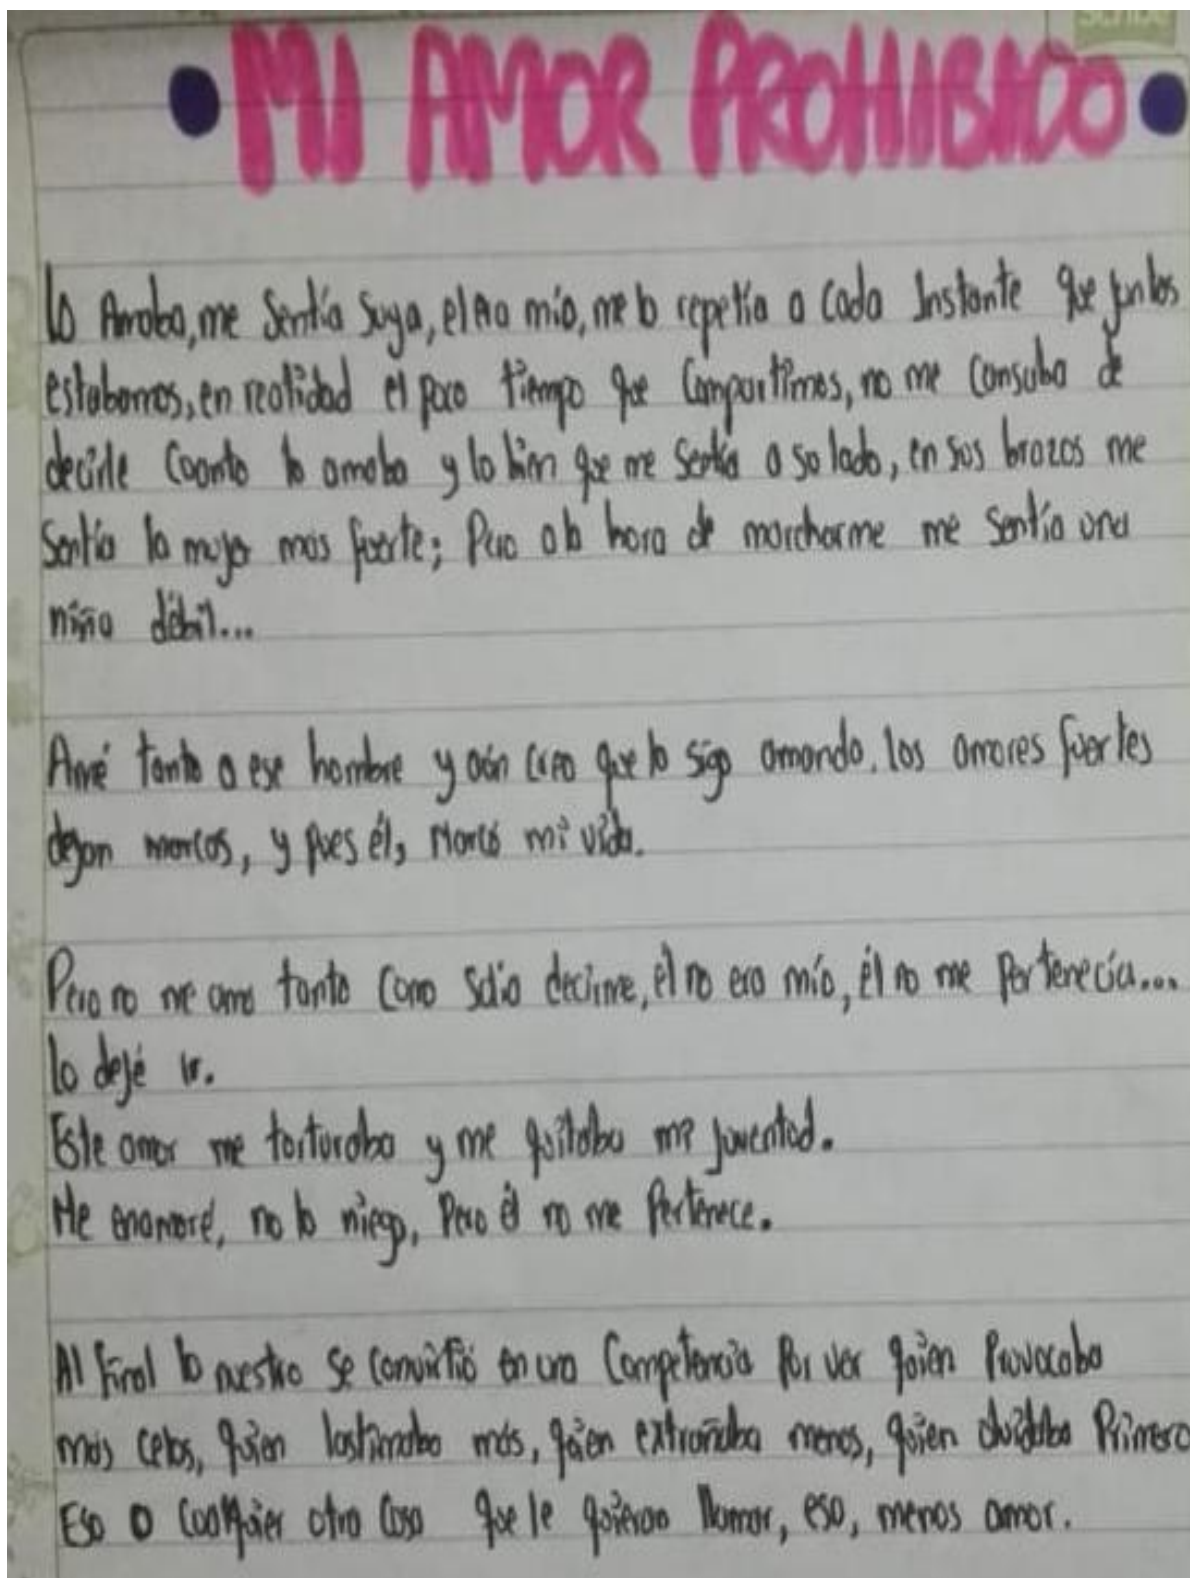 Scribe
• MI AMOR PROHIBIDO •
Lo Amaba, me Sentía Suya, el era mío, me lo repetía a cada Instante que juntos
estabamos, en realidad el poco tiempo que Compartimos, no me cansaba de
decirle Cuanto lo amaba y lo bien que me sentía a su lado, en sus brazos me
Sentía la mujer mas fuerte; Pero a la hora de marcharme me sentía una
niña débil...
Amé tanto a ese hombre y aún creo que lo sigo amando. los amores fuertes
dejan marcas, y pues él, Marcó mi vida.
Pero no me amo tanto como solía decirme, él no era mío, él no me Pertenecía...
lo dejé ir.
Este amor me torturaba y me quitaba mi juventud.
Me enamoré, no lo niego, Pero él no me Pertenece.
Al final lo nuestro se convirtió en una Competencia Por ver quien Provocaba
más celos, quien lastimaba más, quien extrañaba menos, quien olvidaba Primero
Eso o Cualquier otra Cosa que le quieran llamar, eso, menos amor.